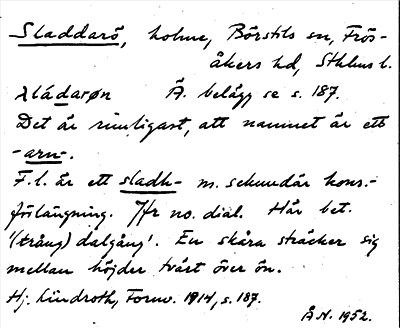 Sladdarö, holme, Börstils sn, Frös-
åkers hd, Sthlms l.
sládarøn Ä. belägg se s. 187.
Det är rimligast, att namnet är ett
-arn-.
F.l. är ett sladh- m. sekundär kons.-
förlängning. Jfr no. dial. Här bet.
'(trång) dalgång'. En skåra sträcker sig
mellan höjder tvärt över ön.
Hj. Lindroth, Fornv. 1914, s. 187.
Å.N. 1952.